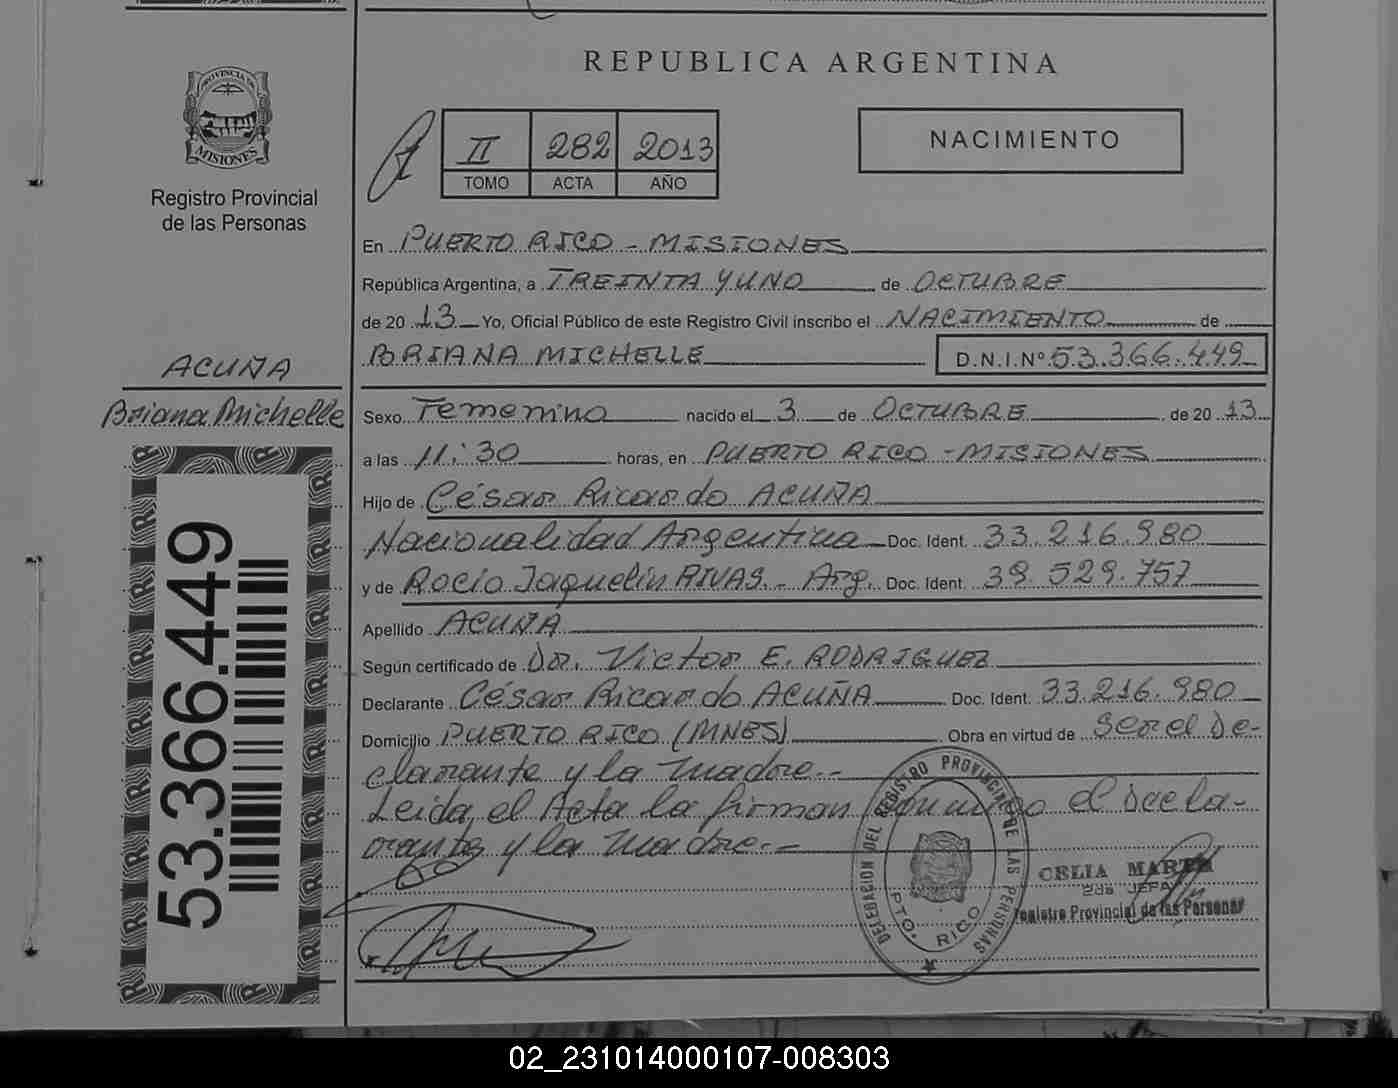 REPUBLICA ARGENTINA
PROVINCIA DE
MISIONES
Registro Provincial
de las Personas
II 282 2013
TOMO ACTA AÑO
NACIMIENTO
En PUERTO RICO - MISIONES
República Argentina, a TREINTA Y UNO de OCTUBRE
de 20 13 Yo, Oficial Público de este Registro Civil inscribo el NACIMIENTO de
BRIANA MICHELLE D.N.I.Nº 53.366.449
ACUÑA
Briana Michelle
53.366.449
Sexo Femenino nacido el 3 de OCTUBRE de 20 13
a las 11:30 horas, en PUERTO RICO - MISIONES
Hijo de César Ricardo ACUÑA
Nacionalidad Argentina Doc. Ident. 33.216.980
y de Rocío Jaquelin RIVAS.- Arg. Doc. Ident. 39.529.757
Apellido ACUÑA
Según certificado de Dr. Victor E. RODRIGUEZ
Declarante César Ricardo ACUÑA Doc. Ident. 33.216.980
Domicilio PUERTO RICO (MNES) Obra en virtud de Ser el De-
clarante y la Madre.-
Leida, el Acta la firman conmigo el Decla-
rante y la Madre.-
DELEGACION DEL REGISTRO PROVINCIAL DE LAS PERSONAS
PTO. RICO
CELIA MARTA
2da JEFA
Registro Provincial de las Personas
02_231014000107-008303